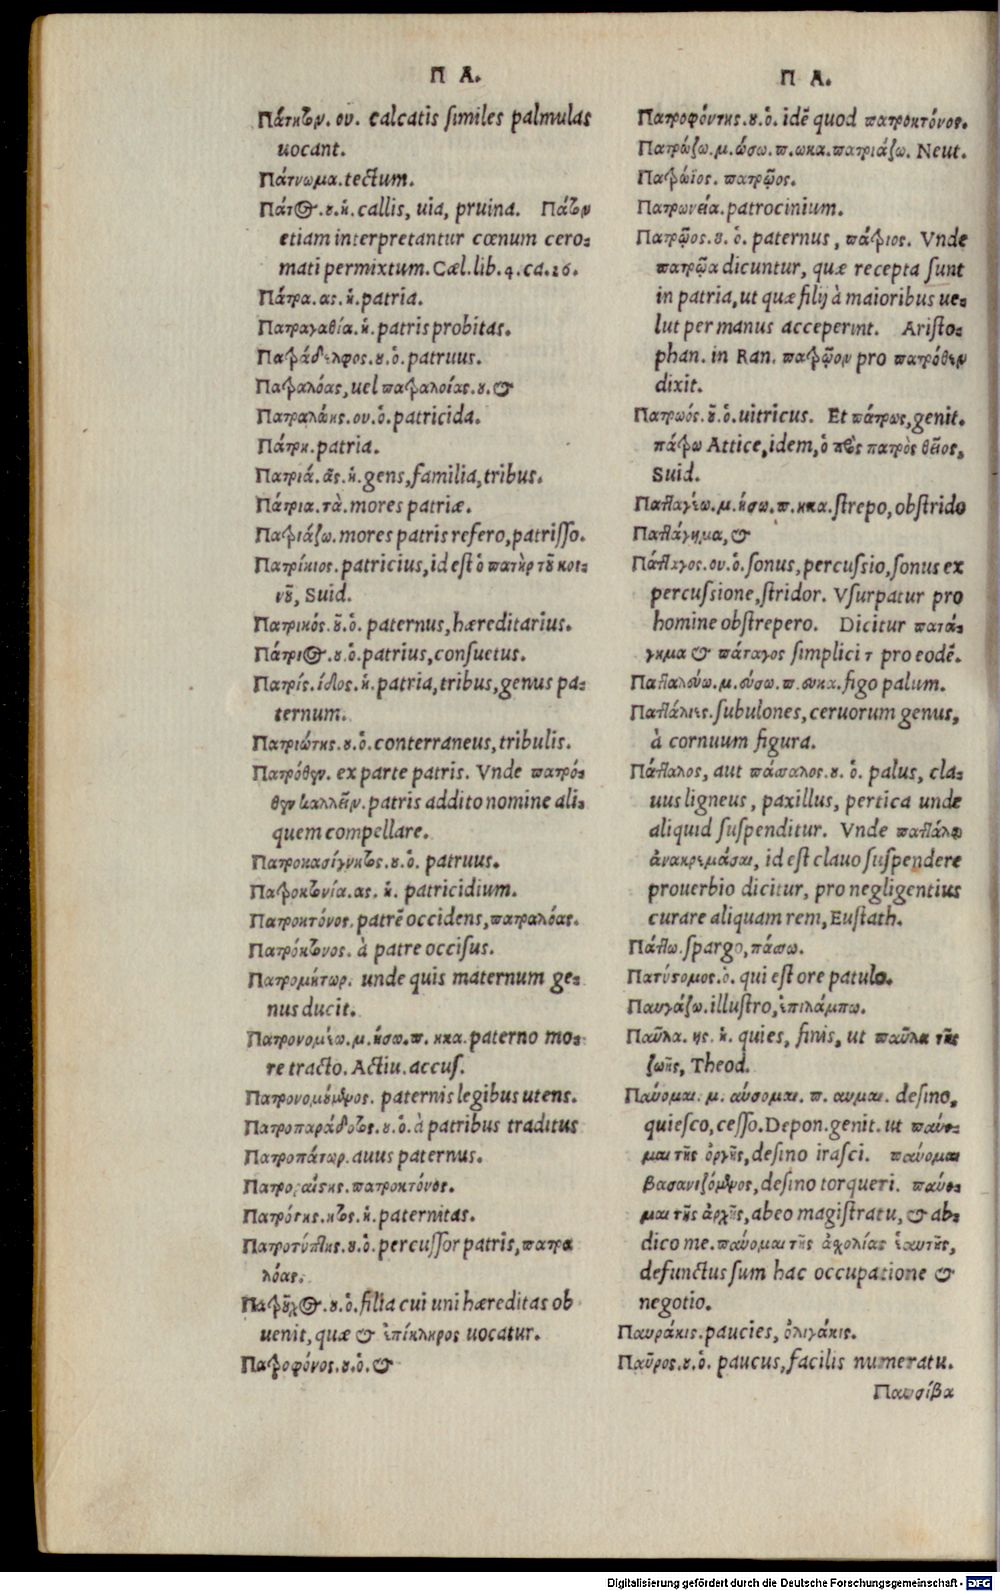 Π Α.
Πάτητον. ου. calcatis similes palmulas
uocant.
Πάτνωμα. tectum.
Πάτος. ου. ἡ. callis, uia, pruina. Πάτον
etiam interpretantur cœnum cero-
mati permixtum. Cæl. lib. 4. ca. 26.
Πάτρα. ας. ἡ. patria.
Πατραγαθία. ἡ. patris probitas.
Πατράδελφος. ου. ὁ. patruus.
Πατραλόας, uel πατραλοίας. ου. &
Πατραλώης. ου. ὁ. patricida.
Πάτρη. patria.
Πατριά. ᾶς. ἡ. gens, familia, tribus.
Πάτρια. τὰ. mores patriæ.
Πατριάζω. mores patris refero, patrisso.
Πατρίκιος. patricius, id est ὁ πατὴρ τοῦ κοι-
νοῦ, Suid.
Πατρικός. οῦ. ὁ. paternus, hæreditarius.
Πάτριος. ου. ὁ. patrius, consuetus.
Πατρίς. ίδος. ἡ. patria, tribus, genus pa-
ternum.
Πατριώτης. ου. ὁ. conterraneus, tribulis.
Πατρόθεν. ex parte patris. Vnde πατρό-
θεν καλλεῖν. patris addito nomine ali-
quem compellare.
Πατροκασίγνητος. ου. ὁ. patruus.
Πατροκτονία. ας. ἡ. patricidium.
Πατροκτόνος. patrē occidens, πατραλόας.
Πατρόκτονος. à patre occisus.
Πατρομήτωρ. unde quis maternum ge-
nus ducit.
Πατρονομέω. μ. ήσω. π. ηκα. paterno mo-
re tracto. Actiu. accus.
Πατρονομούμενος. paternis legibus utens.
Πατροπαράδοτος. ου. ὁ. à patribus traditus
Πατροπάτωρ. auus paternus.
Πατροραίστης. πατροκτόνος.
Πατρότης. ητος. ἡ. paternitas.
Πατροτύπτης. ου. ὁ. percussor patris, πατρα
λόας.
Πατροῦχος. ου. ὁ. filia cui uni hæreditas ob
uenit, quæ & ἐπίκληρος uocatur.
Πατροφόνος. ου. ὁ. &
Π Α.
Πατροφόντης. ου. ὁ. idē quod πατροκτόνος.
Πατρώζω. μ. ώσω. π. ωκα. πατριάζω. Neut.
Πατρώϊος. πατρῷος.
Πατρωνεία. patrocinium.
Πατρῷος. ου. ὁ. paternus, πάτριος. Vnde
πατρῷα dicuntur, quæ recepta sunt
in patria, ut quæ filij à maioribus ue-
lut per manus acceperint. Aristo-
phan. in Ran. πατρῷον pro πατρόθεν
dixit.
Πατρωός. οῦ. ὁ. uitricus. Et πάτρως, genit.
πάτρω Attice, idem, ὁ πρὸς πατρὸς θεῖος,
Suid.
Παταγέω. μ. ήσω. π. ηκα. strepo, obstrido
Πατάγημα, &
Πάταγος. ου. ὁ. sonus, percussio, sonus ex
percussione, stridor. Vsurpatur pro
homine obstrepero. Dicitur πατά-
γημα & πάταγος simplici τ pro eodē.
Πατταλεύω. μ. εύσω. π. ευκα. figo palum.
Παττάλιες. subulones, ceruorum genus,
à cornuum figura.
Πάτταλος, aut πάσσαλος. ου. ὁ. palus, cla-
uus ligneus, paxillus, pertica unde
aliquid suspenditur. Vnde παττάλῳ
ἀνακρεμάσαι, id est clauo suspendere
prouerbio dicitur, pro negligentius
curare aliquam rem, Eustath.
Πάττω. spargo, πάσσω.
Πατύστομος. ὁ. qui est ore patulo.
Παυγάζω. illustro, ἐπιλάμπω.
Παῦλα. ης. ἡ. quies, finis, ut παῦλα τῆς
ζωῆς, Theod.
Παύομαι. μ. αύσομαι. π. αυμαι. desino,
quiesco, cesso. Depon. genit. ut παύο-
μαι τῆς ὀργῆς, desino irasci. παύομαι
βασανιζόμενος, desino torqueri. παύο-
μαι τῆς ἀρχῆς, abeo magistratu, & ab-
dico me. παύομαι τῆς ἀσχολίας ἑαυτῆς,
defunctus sum hac occupatione &
negotio.
Παυράκις. paucies, ὀλιγάκις.
Παῦρος. ου. ὁ. paucus, facilis numeratu.
Παυσίβα
Digitalisierung gefördert durch die Deutsche Forschungsgemeinschaft - DFG